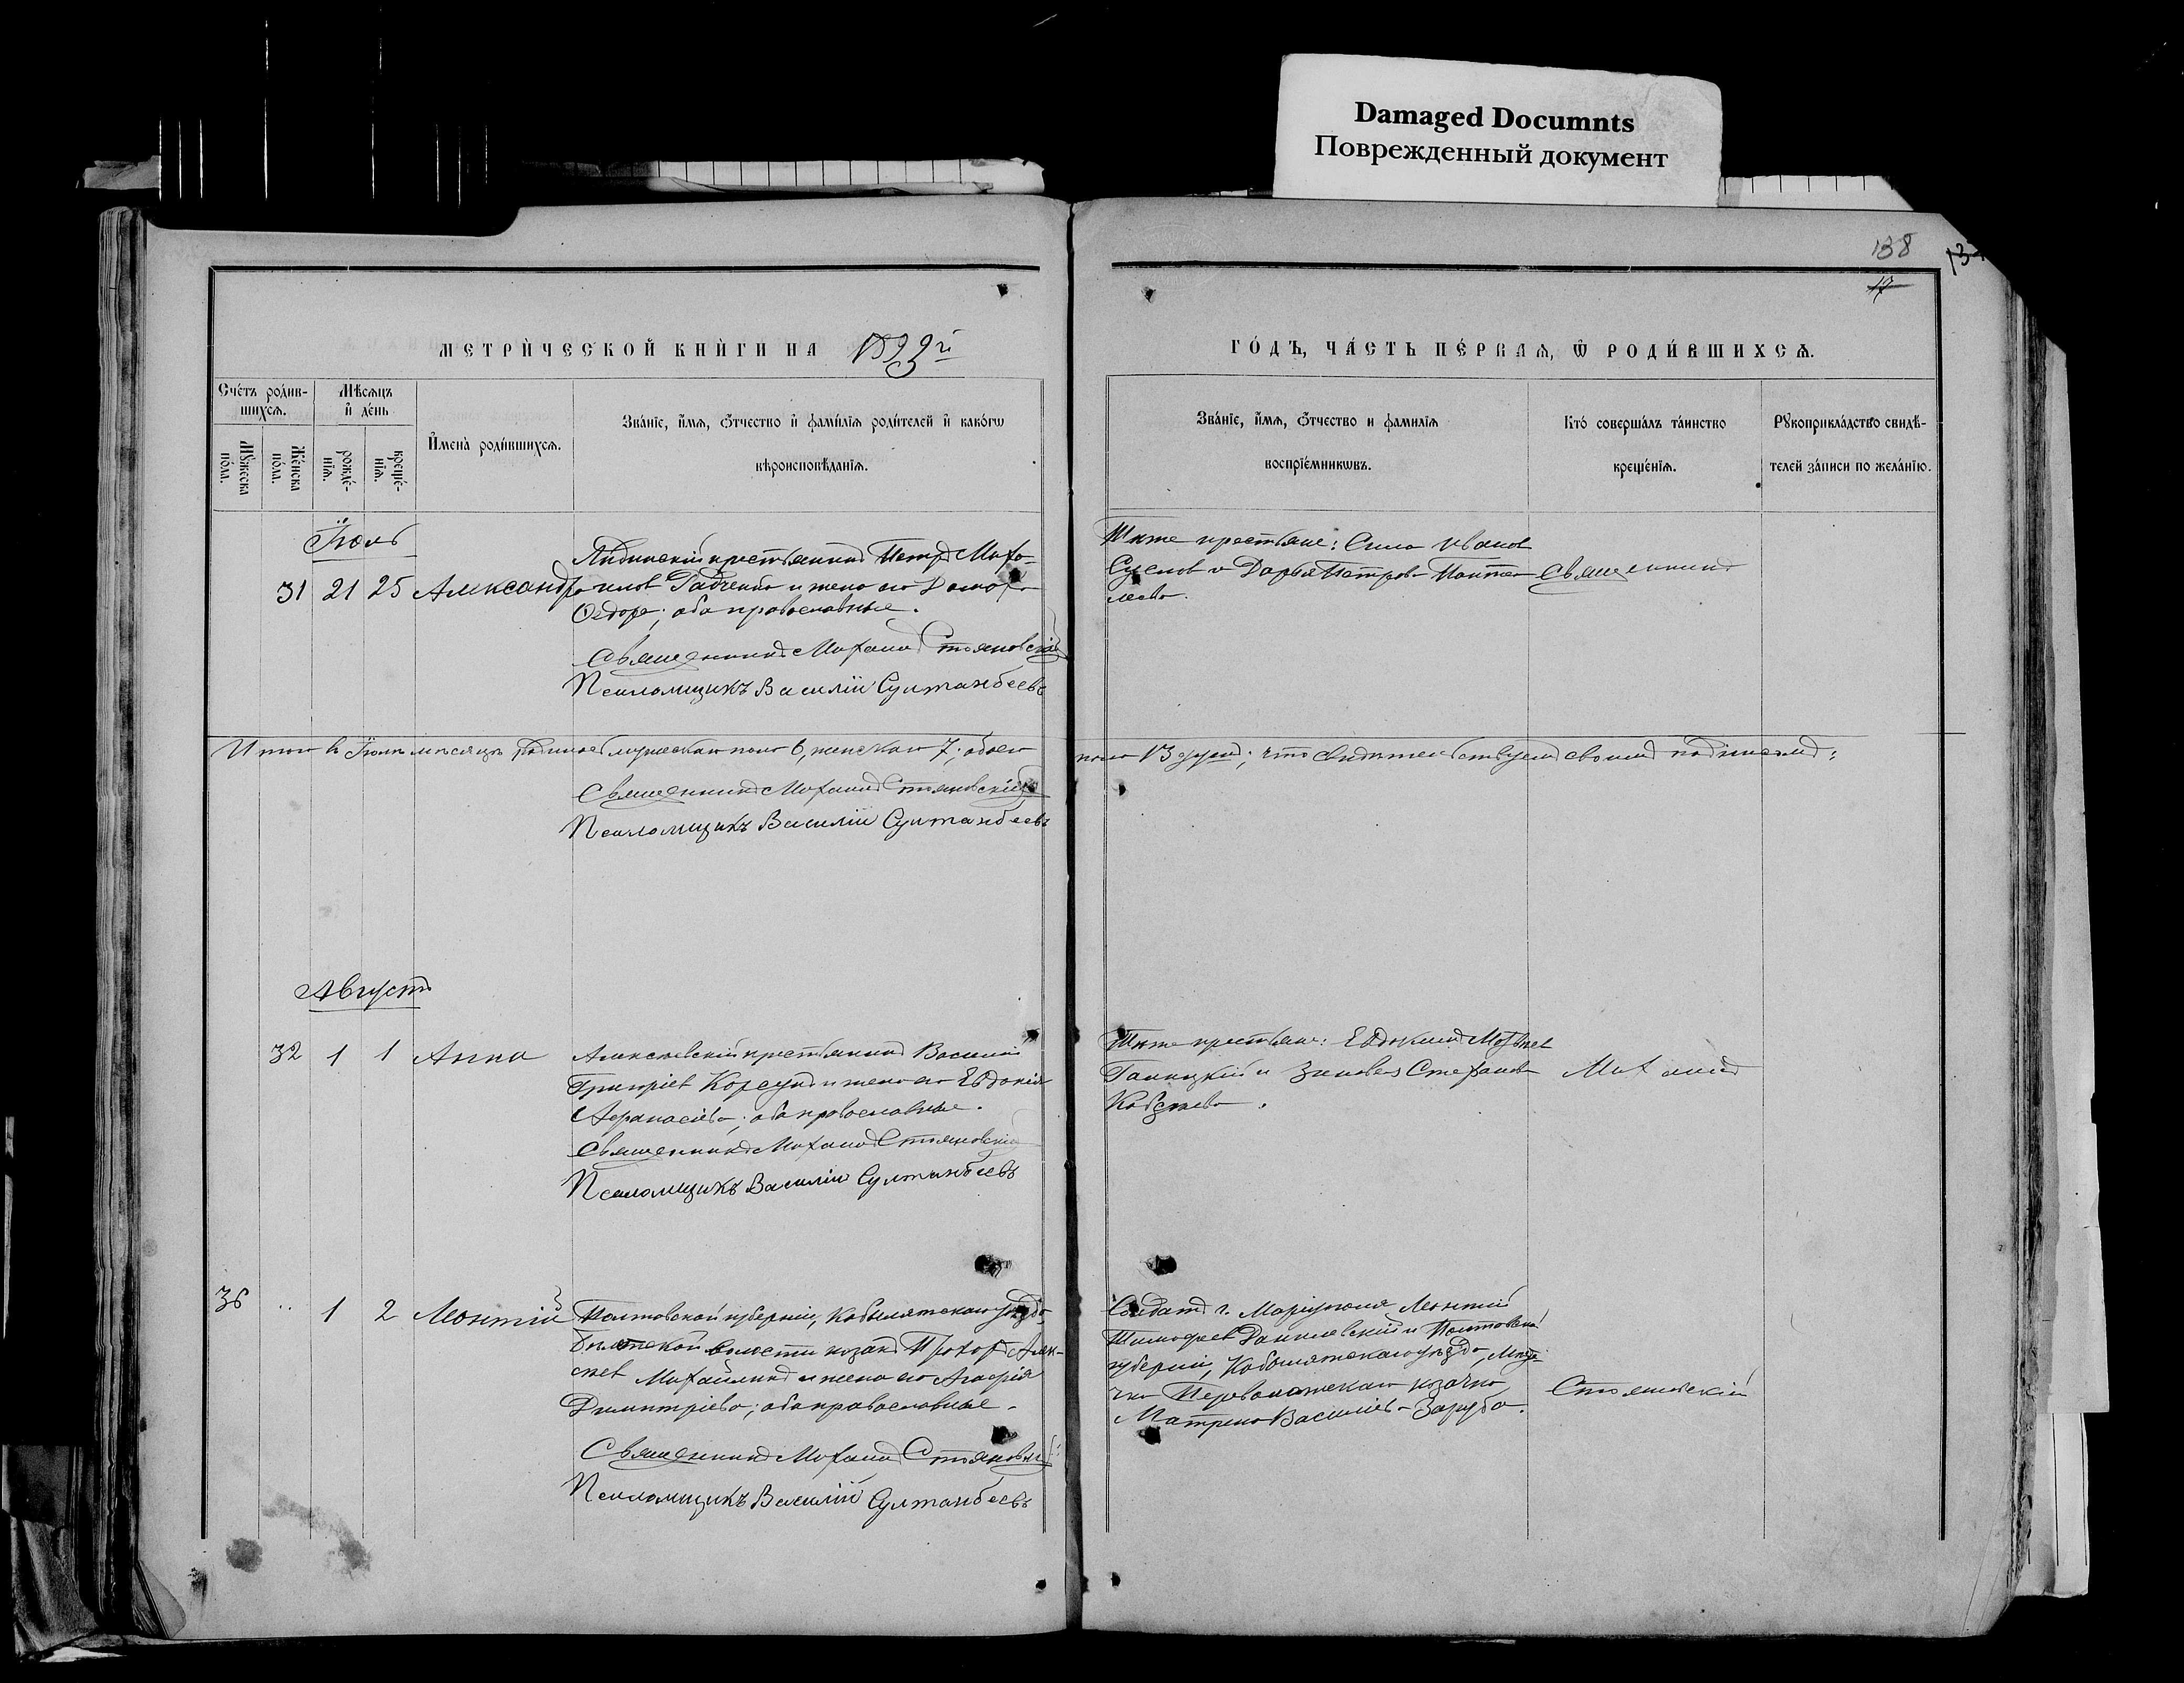 Damaged Documnts
Поврежденный документ
138
17
МЕТРИЧЕСКОЙ КНИГИ НА 1899й
ГОДЪ, ЧАСТЬ ПЕРВАЯ, Ѡ РОДИВШИХСЯ.
Счетъ родив-
шихся.
Мужеска
пола.
Женска
пола.
Мѣсяцъ
и день
рожде-
нія.
креще-
нія.
Имена родившихся.
Званіе, имя, отчество и фамилія родителей и какогѡ
вѣроисповѣданія.
Званіе, имя, отчество и фамилія
воспріемникѡвъ.
Кто совершалъ таинство
крещенія.
Рукоприкладство свидѣ-
телей записи по желанію.
Іюль
31 21 25 Александра
крестьянинъ Петръ Миха-
иловъ и жена его
Ѳедор; оба православные.
Священникъ Михаилъ Стояновскій
Псаломщикъ Василій Султанбеевъ
Тѣже крестьяне: Сила Иванов
Суслов и Дарья Петров
Священникъ
Итого въ Іюлѣ мѣсяцѣ родилось мужескаго пола 6, женскаго 7; обоего
пола 13 душъ; что свидѣтельствуемъ своимъ подписомъ:
Священникъ Михаилъ Стояновскій
Псаломщикъ Василій Султанбеевъ
Августъ
32 1 1 Анна
Алексѣевскій крестьянинъ Василій
Григоріев Корсунъ и жена его Евдокія
Аѳанасіева; оба православные.
Священникъ Михаилъ Стояновскій
Псаломщикъ Василій Султанбеевъ
Тѣже крестьяне: Евдокимъ Матвѣев
Галицкій и Зиновія Стефанов
Михаилъ
36 1 2 Леонтій
Полтавской губерніи, Кобылякскаго уѣзда,
волости козакъ Прохоръ Алек-
сѣев и жена его Агафія
Димитріева; оба православные.
Священникъ Михаилъ Стояновскій
Псаломщикъ Василій Султанбеевъ
Солдатъ г. Маріуполя Леонтій
Тимофеев Данилевскій и Полтавской
губерніи, Кобылякскаго уѣзда,
козачка
Матрена Василіев Заруба.
Стояновскій